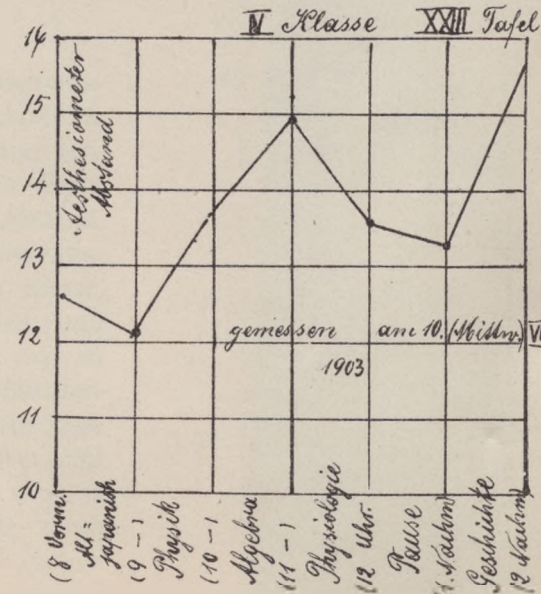 IV Klasse XXIII Tafel
14
15
14
13
12
11
10
Aesthesiometer
Abstand
gemessen am 10. (Mittw.) VI
1903
(8 Vorm.
Alt=
japanisch
(9 — )
Physik
(10 — )
Algebra
(11 — )
Physiologie
(12 Uhr.
Pause
(1. Nachm)
Geschichte
(2 Nachm)